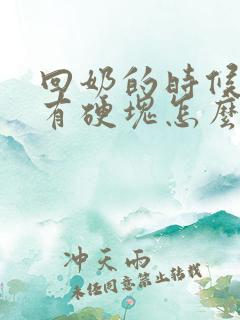 回奶的时候
有硬块怎麽
冲天雨
未经同意禁止转载